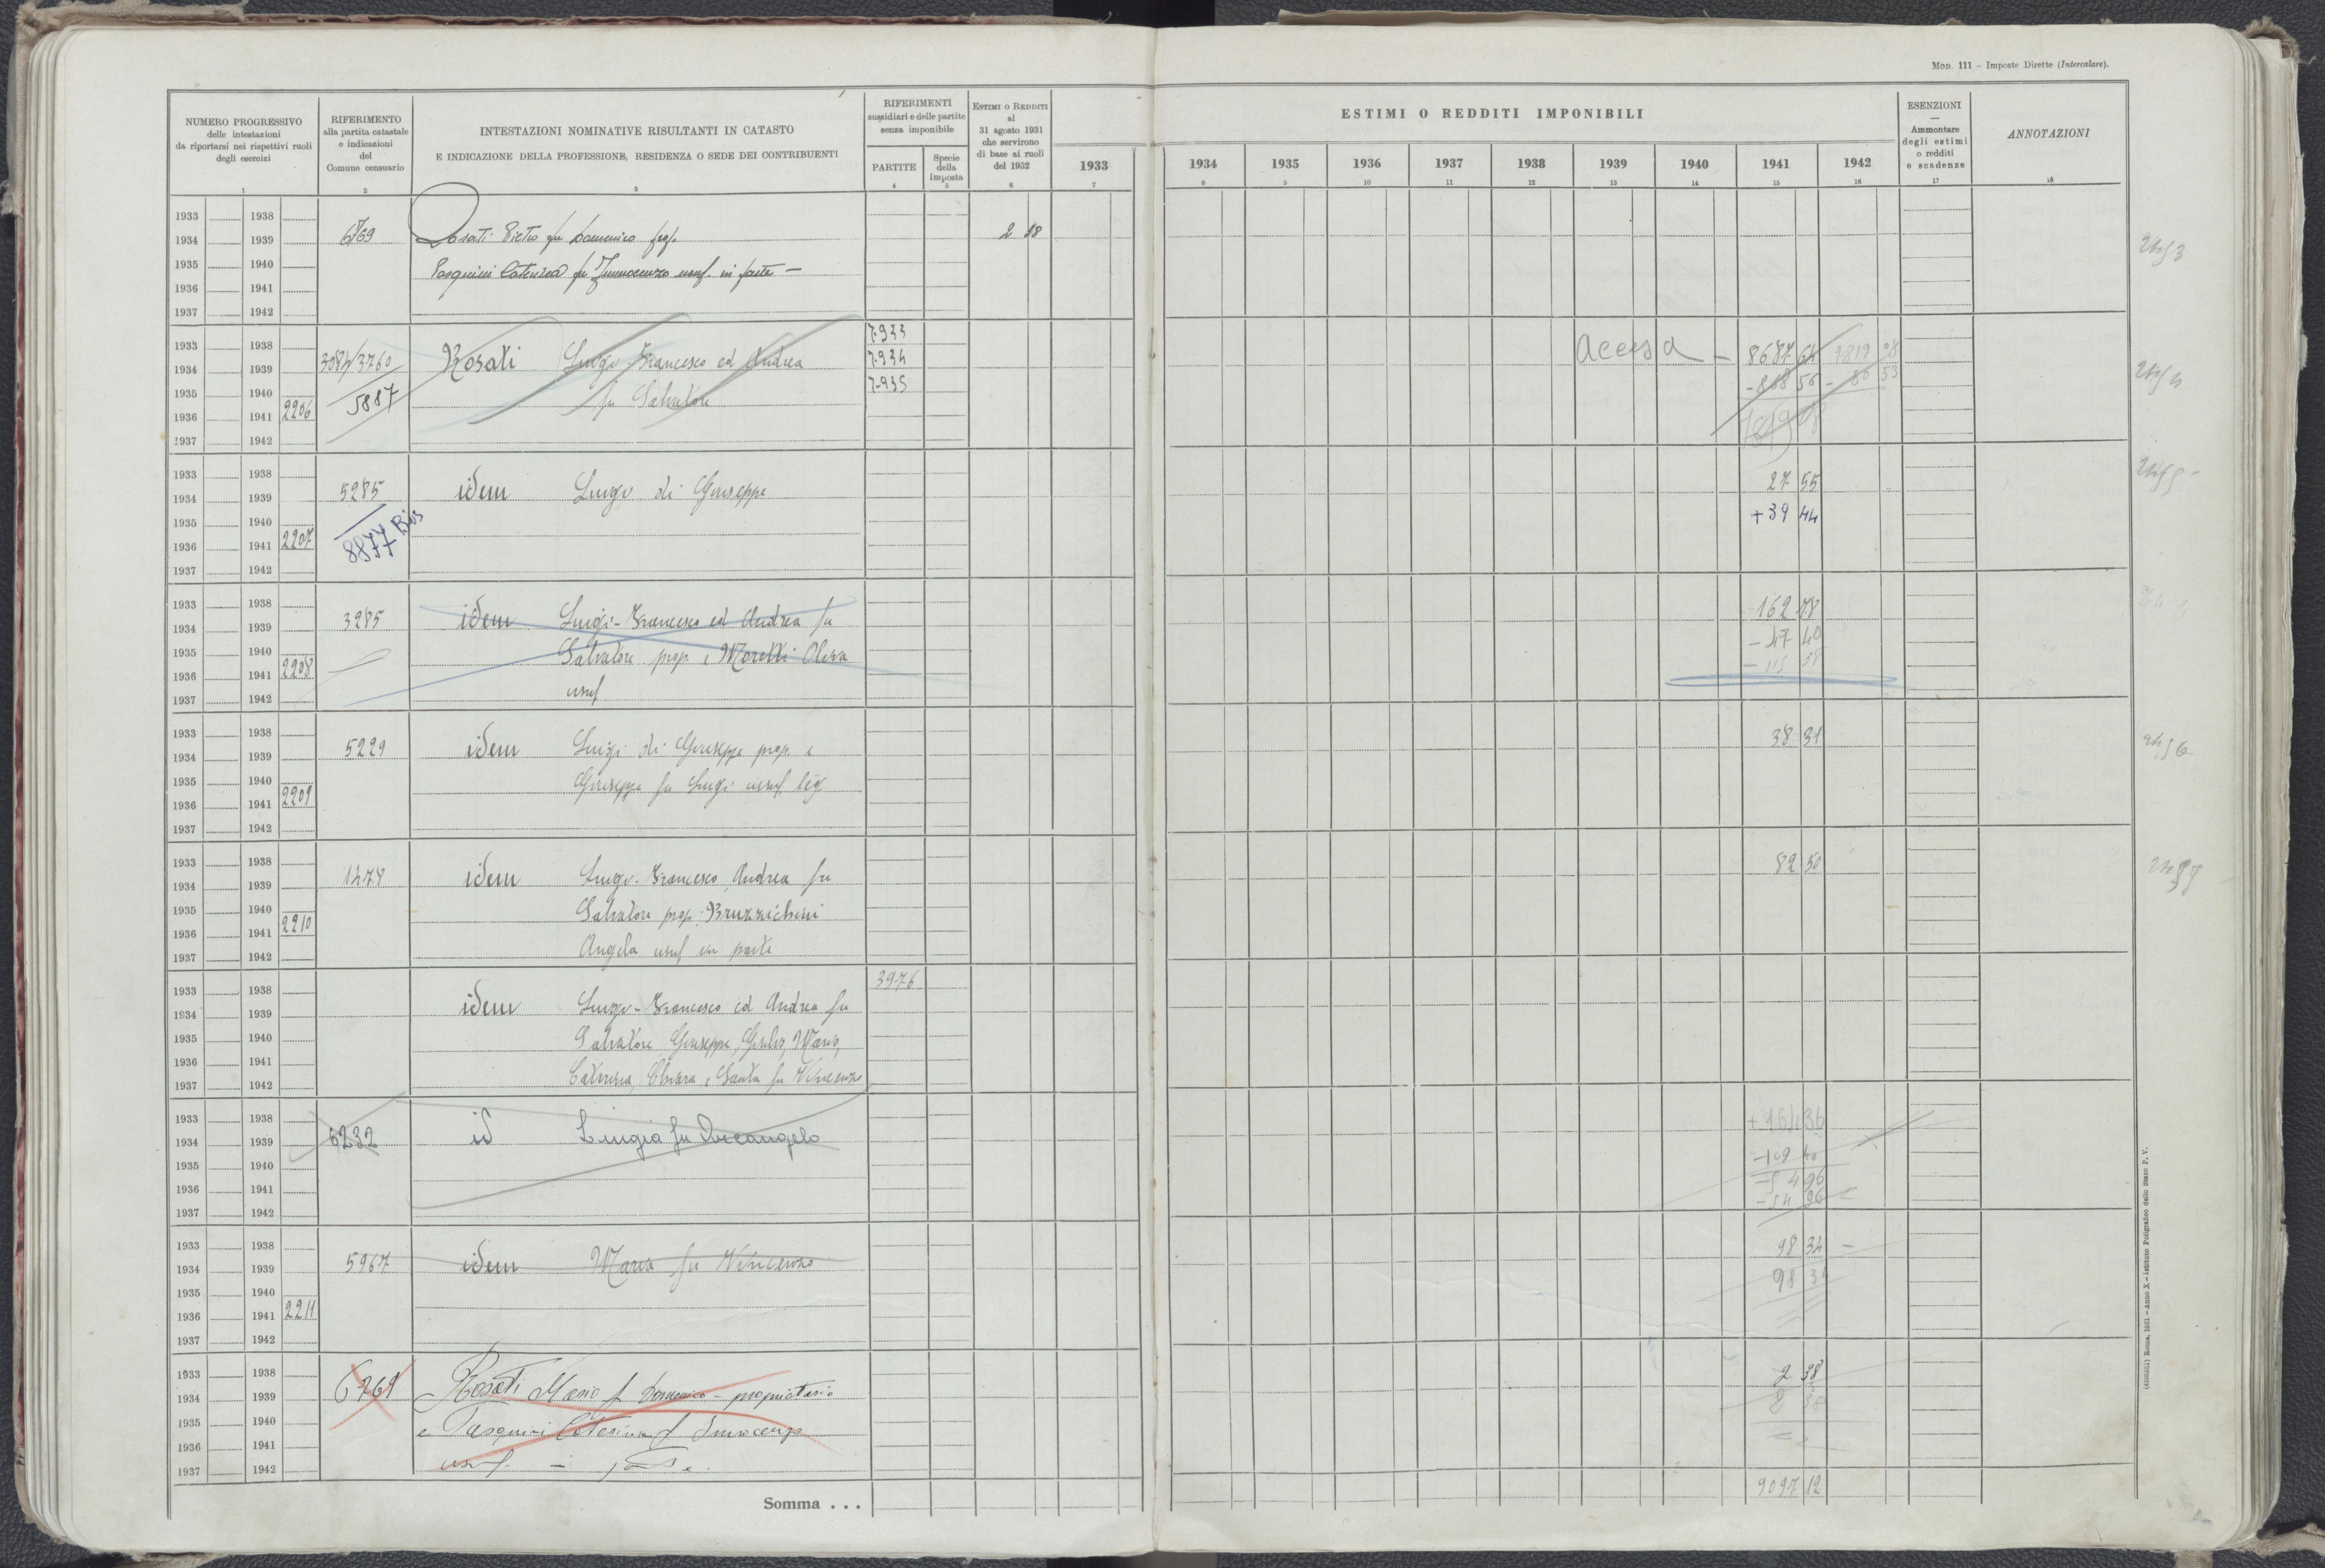 MOD. 111 - Imposte Dirette (Intercalare).
NUMERO PROGRESSIVO
delle intestazioni
da riportarsi nei rispettivi ruoli
degli esercizi
1
RIFERIMENTO
alla partita catastale
e indicazioni
del
Comune censuario
2
INTESTAZIONI NOMINATIVE RISULTANTI IN CATASTO
E INDICAZIONE DELLA PROFESSIONE, RESIDENZA O SEDE DEI CONTRIBUENTI
3
RIFERIMENTI
sussidiari e delle partite
senza imponibile
PARTITE
4
Specie
della
imposta
5
ESTIMI O REDDITI
al
31 agosto 1931
che servirono
di base ai ruoli
del 1932
6
1933
7
ESTIMI O REDDITI IMPONIBILI
1934 1935 1936 1937 1938 1939 1940 1941 1942
8 9 10 11 12 13 14 15 16
ESENZIONI
—
Ammontare
degli estimi
o redditi
e scadenze
17
ANNOTAZIONI
18
1933 1938
1934 1939 6769 Rosati Pietro fu Domenico prop. 2 38
1935 1940 Pasquini Caterina fu Innocenzo usuf. in parte —
1936 1941
1937 1942
1933 1938 7933
1934 1939 3084/3760 Rosati Luigi, Francesco ed Andrea 7934 accesa — 8687 64 7819 08
1935 1940 5887 fu Salvatore 7935 - 868 56 - 86 53
1936 1941 2206 7819 08
1937 1942
1933 1938
1934 1939 5285 idem Luigi di Giuseppe 27 55
1935 1940 8877 Bis + 39 44
1936 1941 2207
1937 1942
1933 1938 162 78
1934 1939 3285 idem Luigi - Francesco ed Andrea fu - 47 40
1935 1940 Salvatore prop. e Moretti Oliva - 115 38
1936 1941 2208 usuf
1937 1942
1933 1938 38 31
1934 1939 5229 idem Luigi di Giuseppe prop. e
1935 1940 Giuseppe fu Luigi usuf. leg.
1936 1941 2209
1937 1942
1933 1938 82 50
1934 1939 1478 idem Luigi - Francesco, Andrea fu
1935 1940 Salvatore prop. Bruzzichini
1936 1941 2210 Angela usuf in parte
1937 1942
1933 1938 3976
1934 1939 idem Luigi - Francesco ed Andrea fu
1935 1940 Salvatore Giuseppe, Giulio, Mario,
1936 1941 Caterina, Chiara e Santa fu Vincenzo
1937 1942
1933 1938 + 164 36
1934 1939 6232 id Luigia fu Arcangelo - 109 40
1935 1940 - 54 96
1936 1941 - 54 96
1937 1942
1933 1938 98 34 —
1934 1939 5967 idem Maria fu Vincenzo 98 34
1935 1940
1936 1941 2211
1937 1942
1933 1938 2 38
1934 1939 6769 Rosati Maria f Domenico - proprietaria 2 38
1935 1940 e Pasquini Caterina f Innocenzo
1936 1941 usuf. in parte.
1937 1942
Somma . . . 9097 12
(4100511) Roma, 1931 - Anno X - Istituto Poligrafico dello Stato P. V.